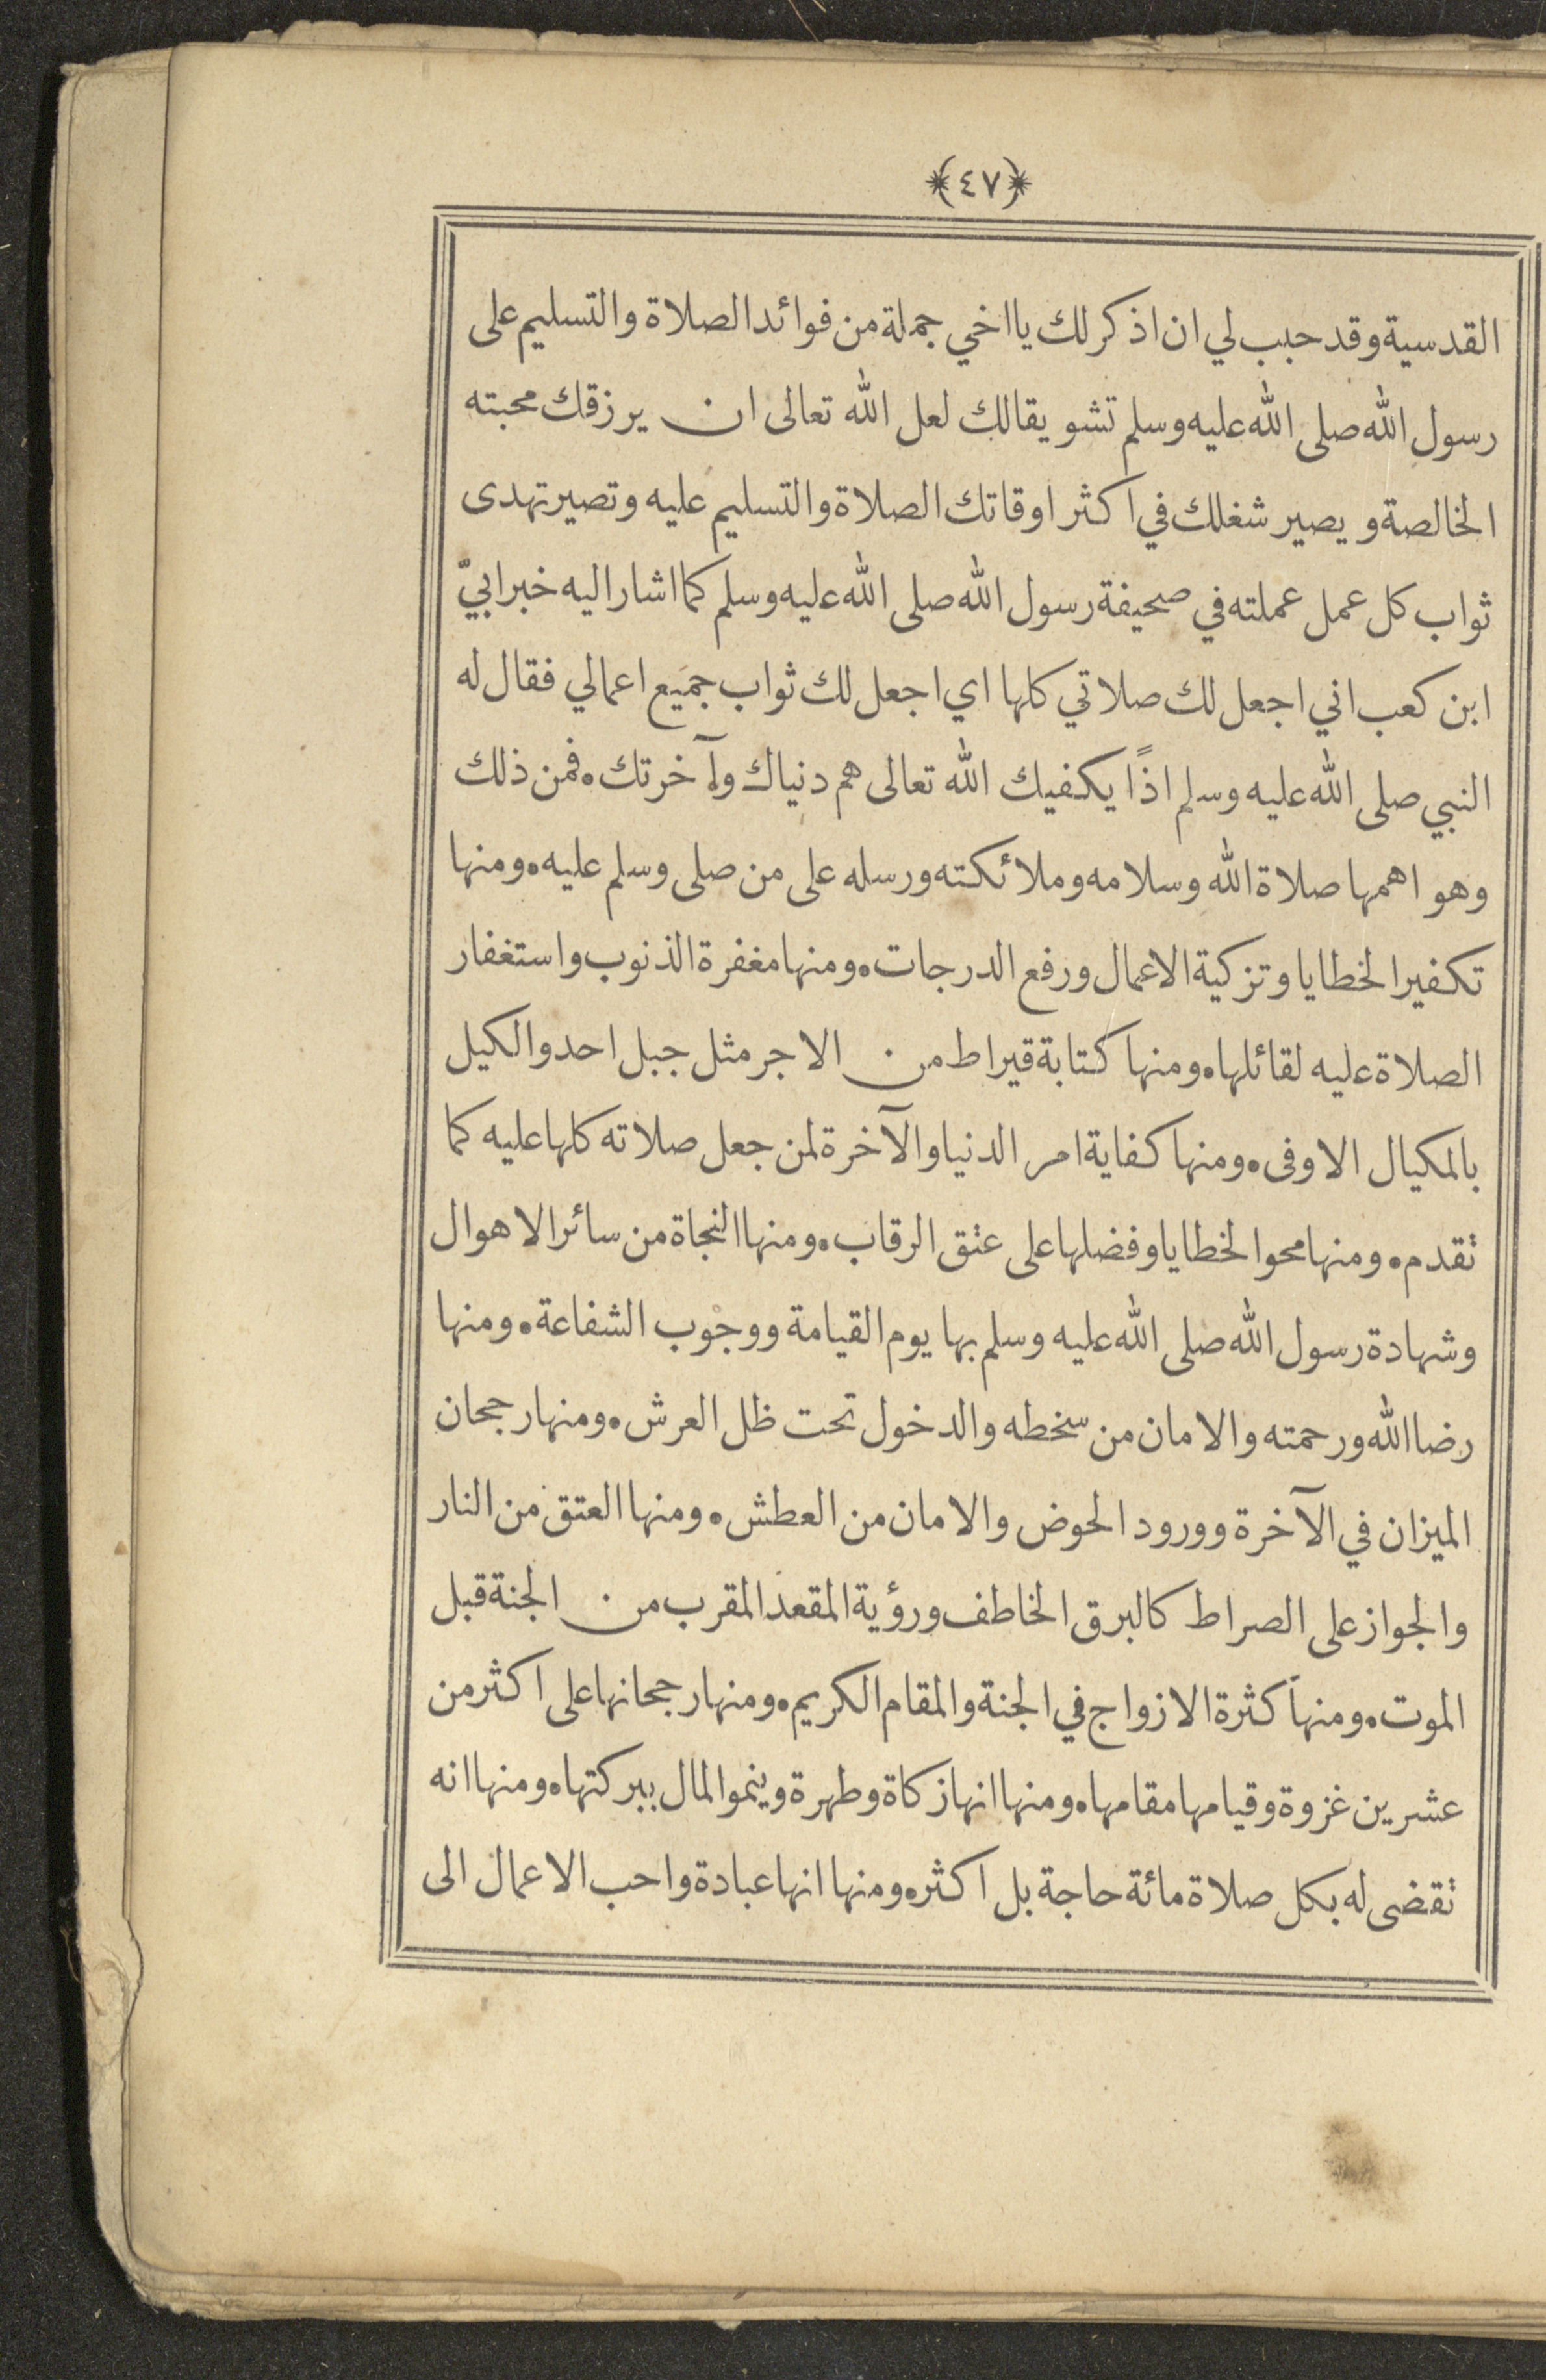 ﴿٤٧﴾
القدسية وقد حبب لي ان اذكر لك يا اخي جملة من فوائد الصلاة والتسليم على
رسول الله صلى الله عليه وسلم تشويقا لك لعل الله تعالى ان يرزقك محبته
الخالصة ويصير شغلك في اكثر اوقاتك الصلاة والتسليم عليه وتصير تهدى
ثواب كل عمل عملته في صحيفة رسول الله صلى الله عليه وسلم كما اشار اليه خبر ابيّ
ابن كعب اني اجعل لك صلاتي كلها اي اجعل لك ثواب جميع اعمالي فقال له
النبي صلى الله عليه وسلم اذًا يكفيك الله تعالى هم دنياك وآخرتك . فمن ذلك
وهو اهمها صلاة الله وسلامه وملائكته ورسله على من صلى وسلم عليه . ومنها
تكفير الخطايا وتزكية الاعمال ورفع الدرجات . ومنها مغفرة الذنوب واستغفار
الصلاة عليه لقائلها . ومنها كتابة قيراط من الاجر مثل جبل احد والكيل
بالمكيال الاوفى . ومنها كفاية امر الدنيا والآخرة لمن جعل صلاته كلها عليه كما
تقدم . ومنها محو الخطايا وفضلها على عتق الرقاب . ومنها النجاة من سائر الاهوال
وشهادة رسول الله صلى الله عليه وسلم بها يوم القيامة ووجوب الشفاعة . ومنها
رضا الله ورحمته والامان من سخطه والدخول تحت ظل العرش . ومنها رجحان
الميزان في الآخرة وورود الحوض والامان من العطش . ومنها العتق من النار
والجواز على الصراط كالبرق الخاطف ورؤية المقعد المقرب من الجنة قبل
الموت . ومنها كثرة الازواج في الجنة والمقام الكريم . ومنها رجحانها على اكثر من
عشرين غزوة وقيامها مقامها . ومنها انها زكاة وطهرة وينمو المال ببركتها . ومنها انه
تقضى له بكل صلاة مائة حاجة بل اكثر . ومنها انها عبادة واحب الاعمال الى